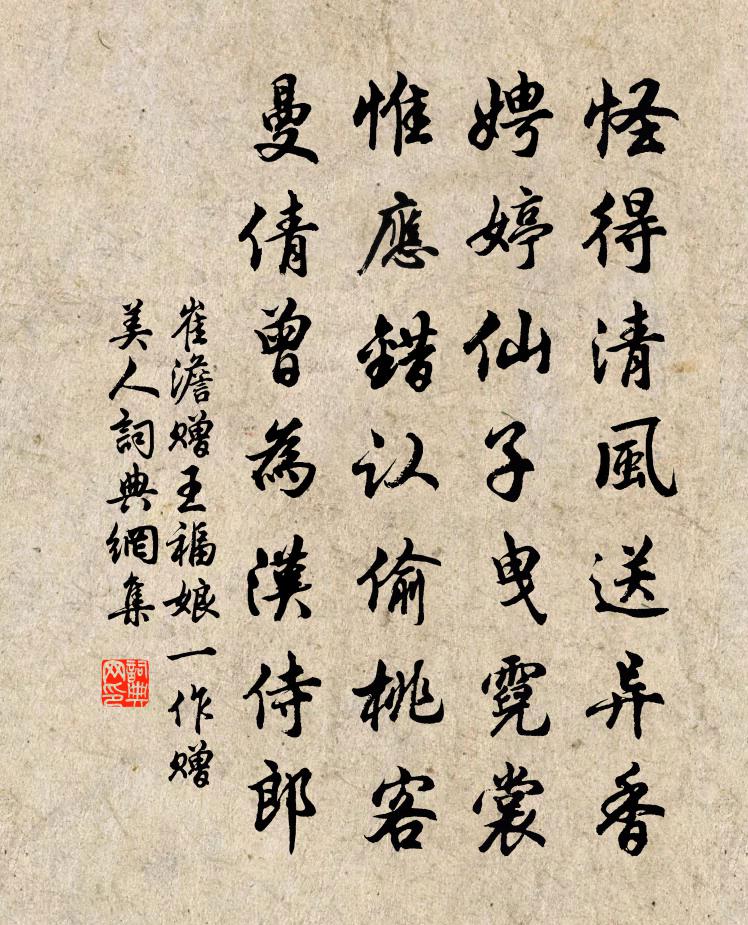 怪得清風送异香
娉婷仙子曳霓裳
惟應錯认偷桃客
曼倩曾為漢侍郎
崔澹赠王福娘一作赠
美人詞典網集
詞典网印